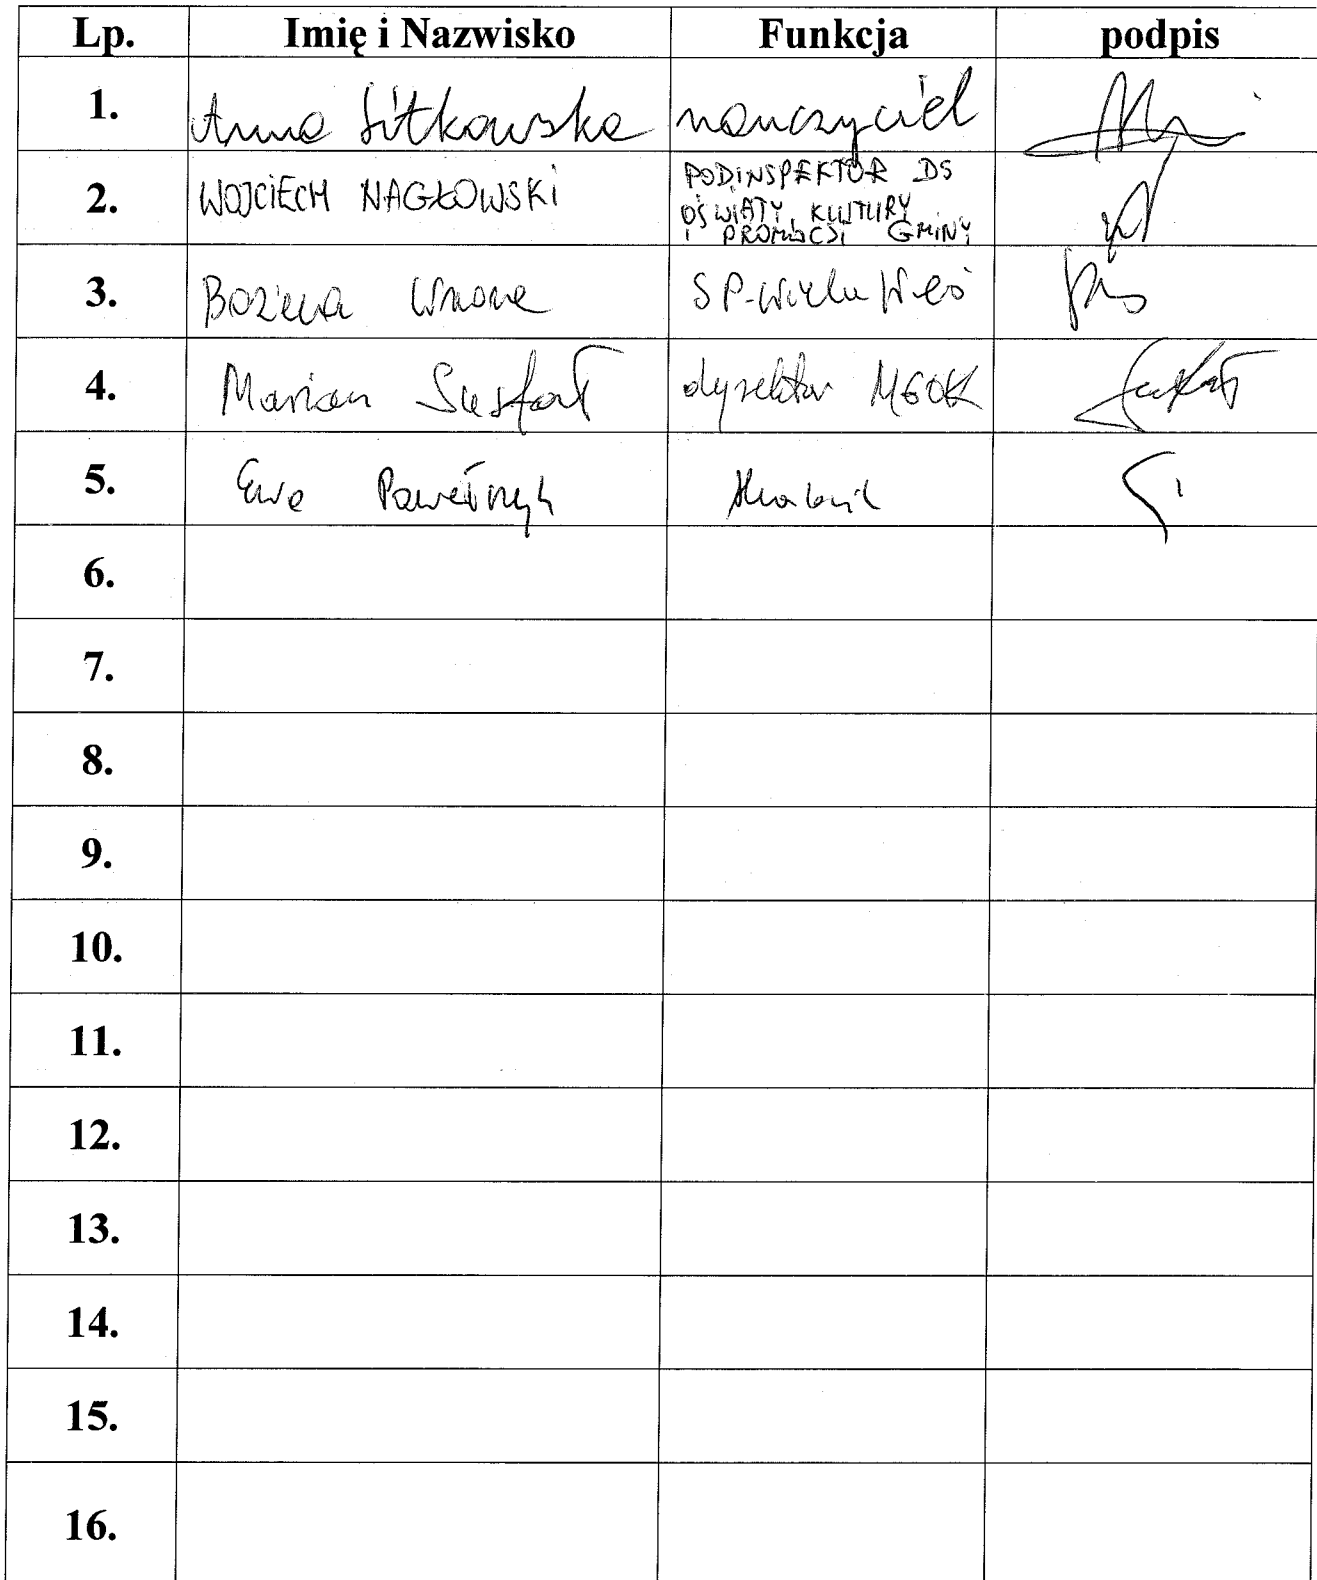 Lp. Imię i Nazwisko Funkcja podpis
1. Anna Sitkowska nauczyciel
2. WOJCIECH NAGŁOWSKI PODINSPEKTOR DS
OŚWIATY, KULTURY
I PROMOCJI GMINY
3. Bożena SP-Wielka Wieś
4. Marian dyrektor MGOK
5. Ewa
6.
7.
8.
9.
10.
11.
12.
13.
14.
15.
16.